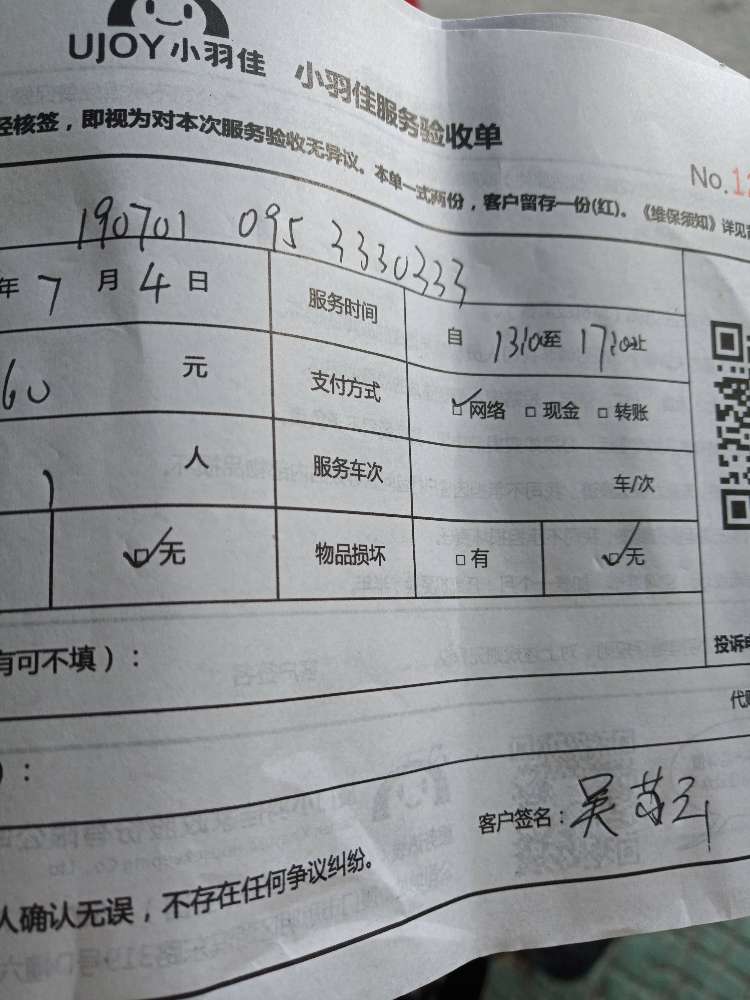 UJOY小羽佳 小羽佳服务验收单
经核签，即视为对本次服务验收无异议。本单一式两份，客户留存一份(红)。《维保须知》详见背
No.12
190701 095 3330333
年 7 月 4 日 服务时间 自 1310至 1710止
60 元 支付方式 □网络 □现金 □转账
1 人 服务车次 车/次
□无 物品损坏 □有 □无
投诉电
有可不填）：
代
）：
客户签名：吴
人确认无误，不存在任何争议纠纷。